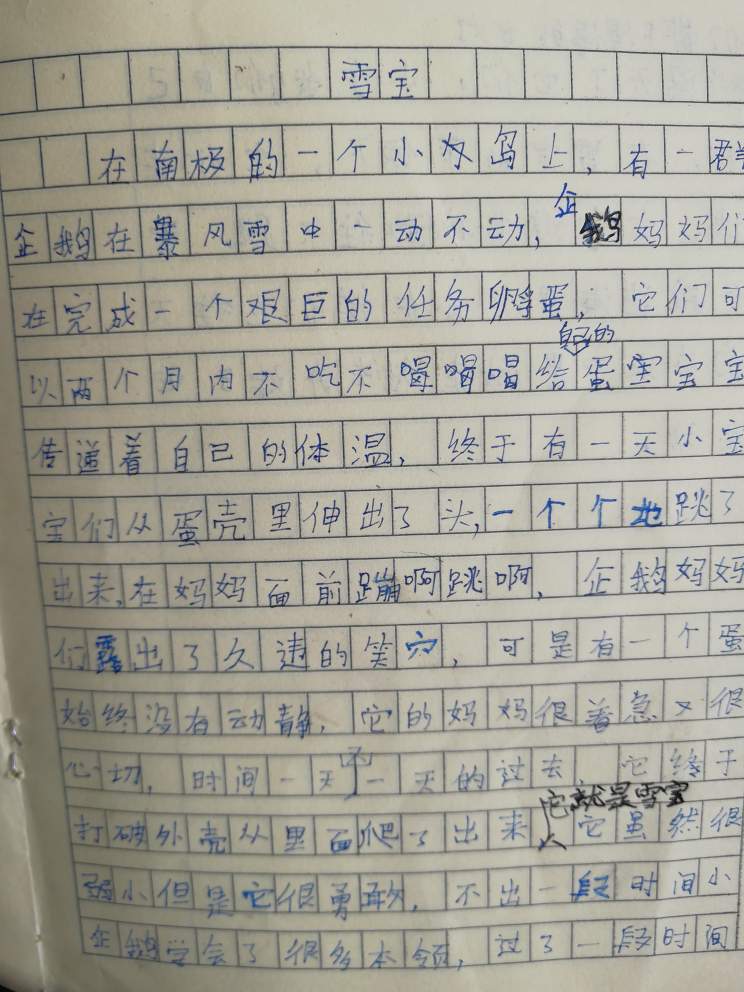 雪宝
在南极的一个小岛上，有一群
企鹅在暴风雪中一动不动，企鹅妈妈们
在完成一个艰巨的任务孵蛋，它们可
以两个月内不吃不喝喝喝给自己的蛋宝宝
传递着自己的体温，终于有一天小宝
宝们从蛋壳里伸出了头，一个个地跳了
出来，在妈妈面前蹦啊跳啊，企鹅妈妈
们露出了久违的笑，可是有一个蛋
始终没有动静，它的妈妈很着急又很
心切，时间一天一天的过去，它终于
打破外壳从里面爬了出来，它就是雪宝它虽然很
弱小但是它很勇敢，不出一段时间小
企鹅学会了很多本领，过了一段时间